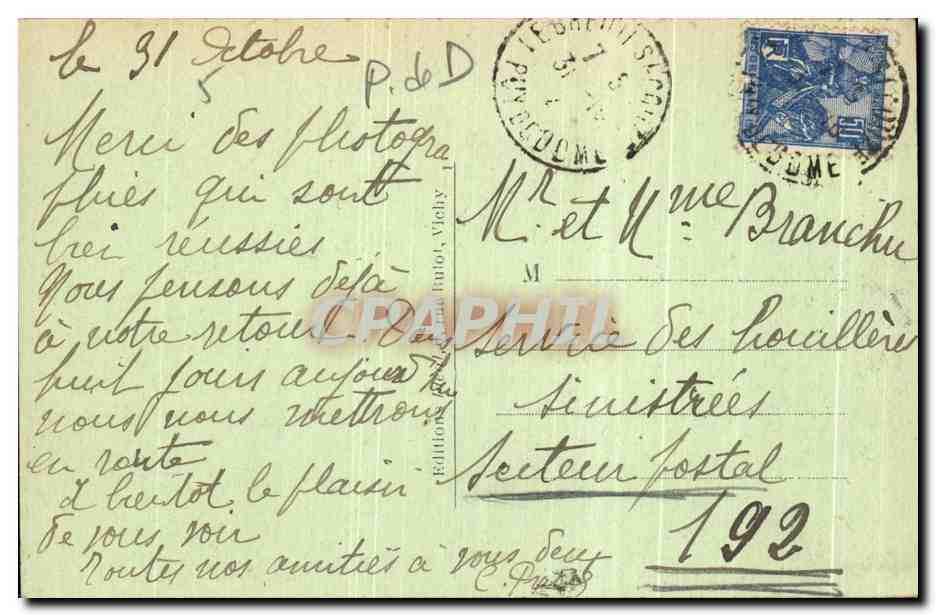 le 31 Octobre
5
P. de D
Merci des photogra
phies qui sont
bien réussies
Nous pensons déjà
à notre retour. Dans
huit jours aujourd'hui
nous nous mettrons
en route
à bientot le plaisir
de vous voir
Toutes nos amitiés à vous deux
LE BREUIL S/ COUZE
PUY-DE-DOME
POSTES
50c
DOME
Mr et Mme Branchu
M
Service des houillères
sinistrées
Secteur postal
192
Butot, Vichy
CRAPHIL